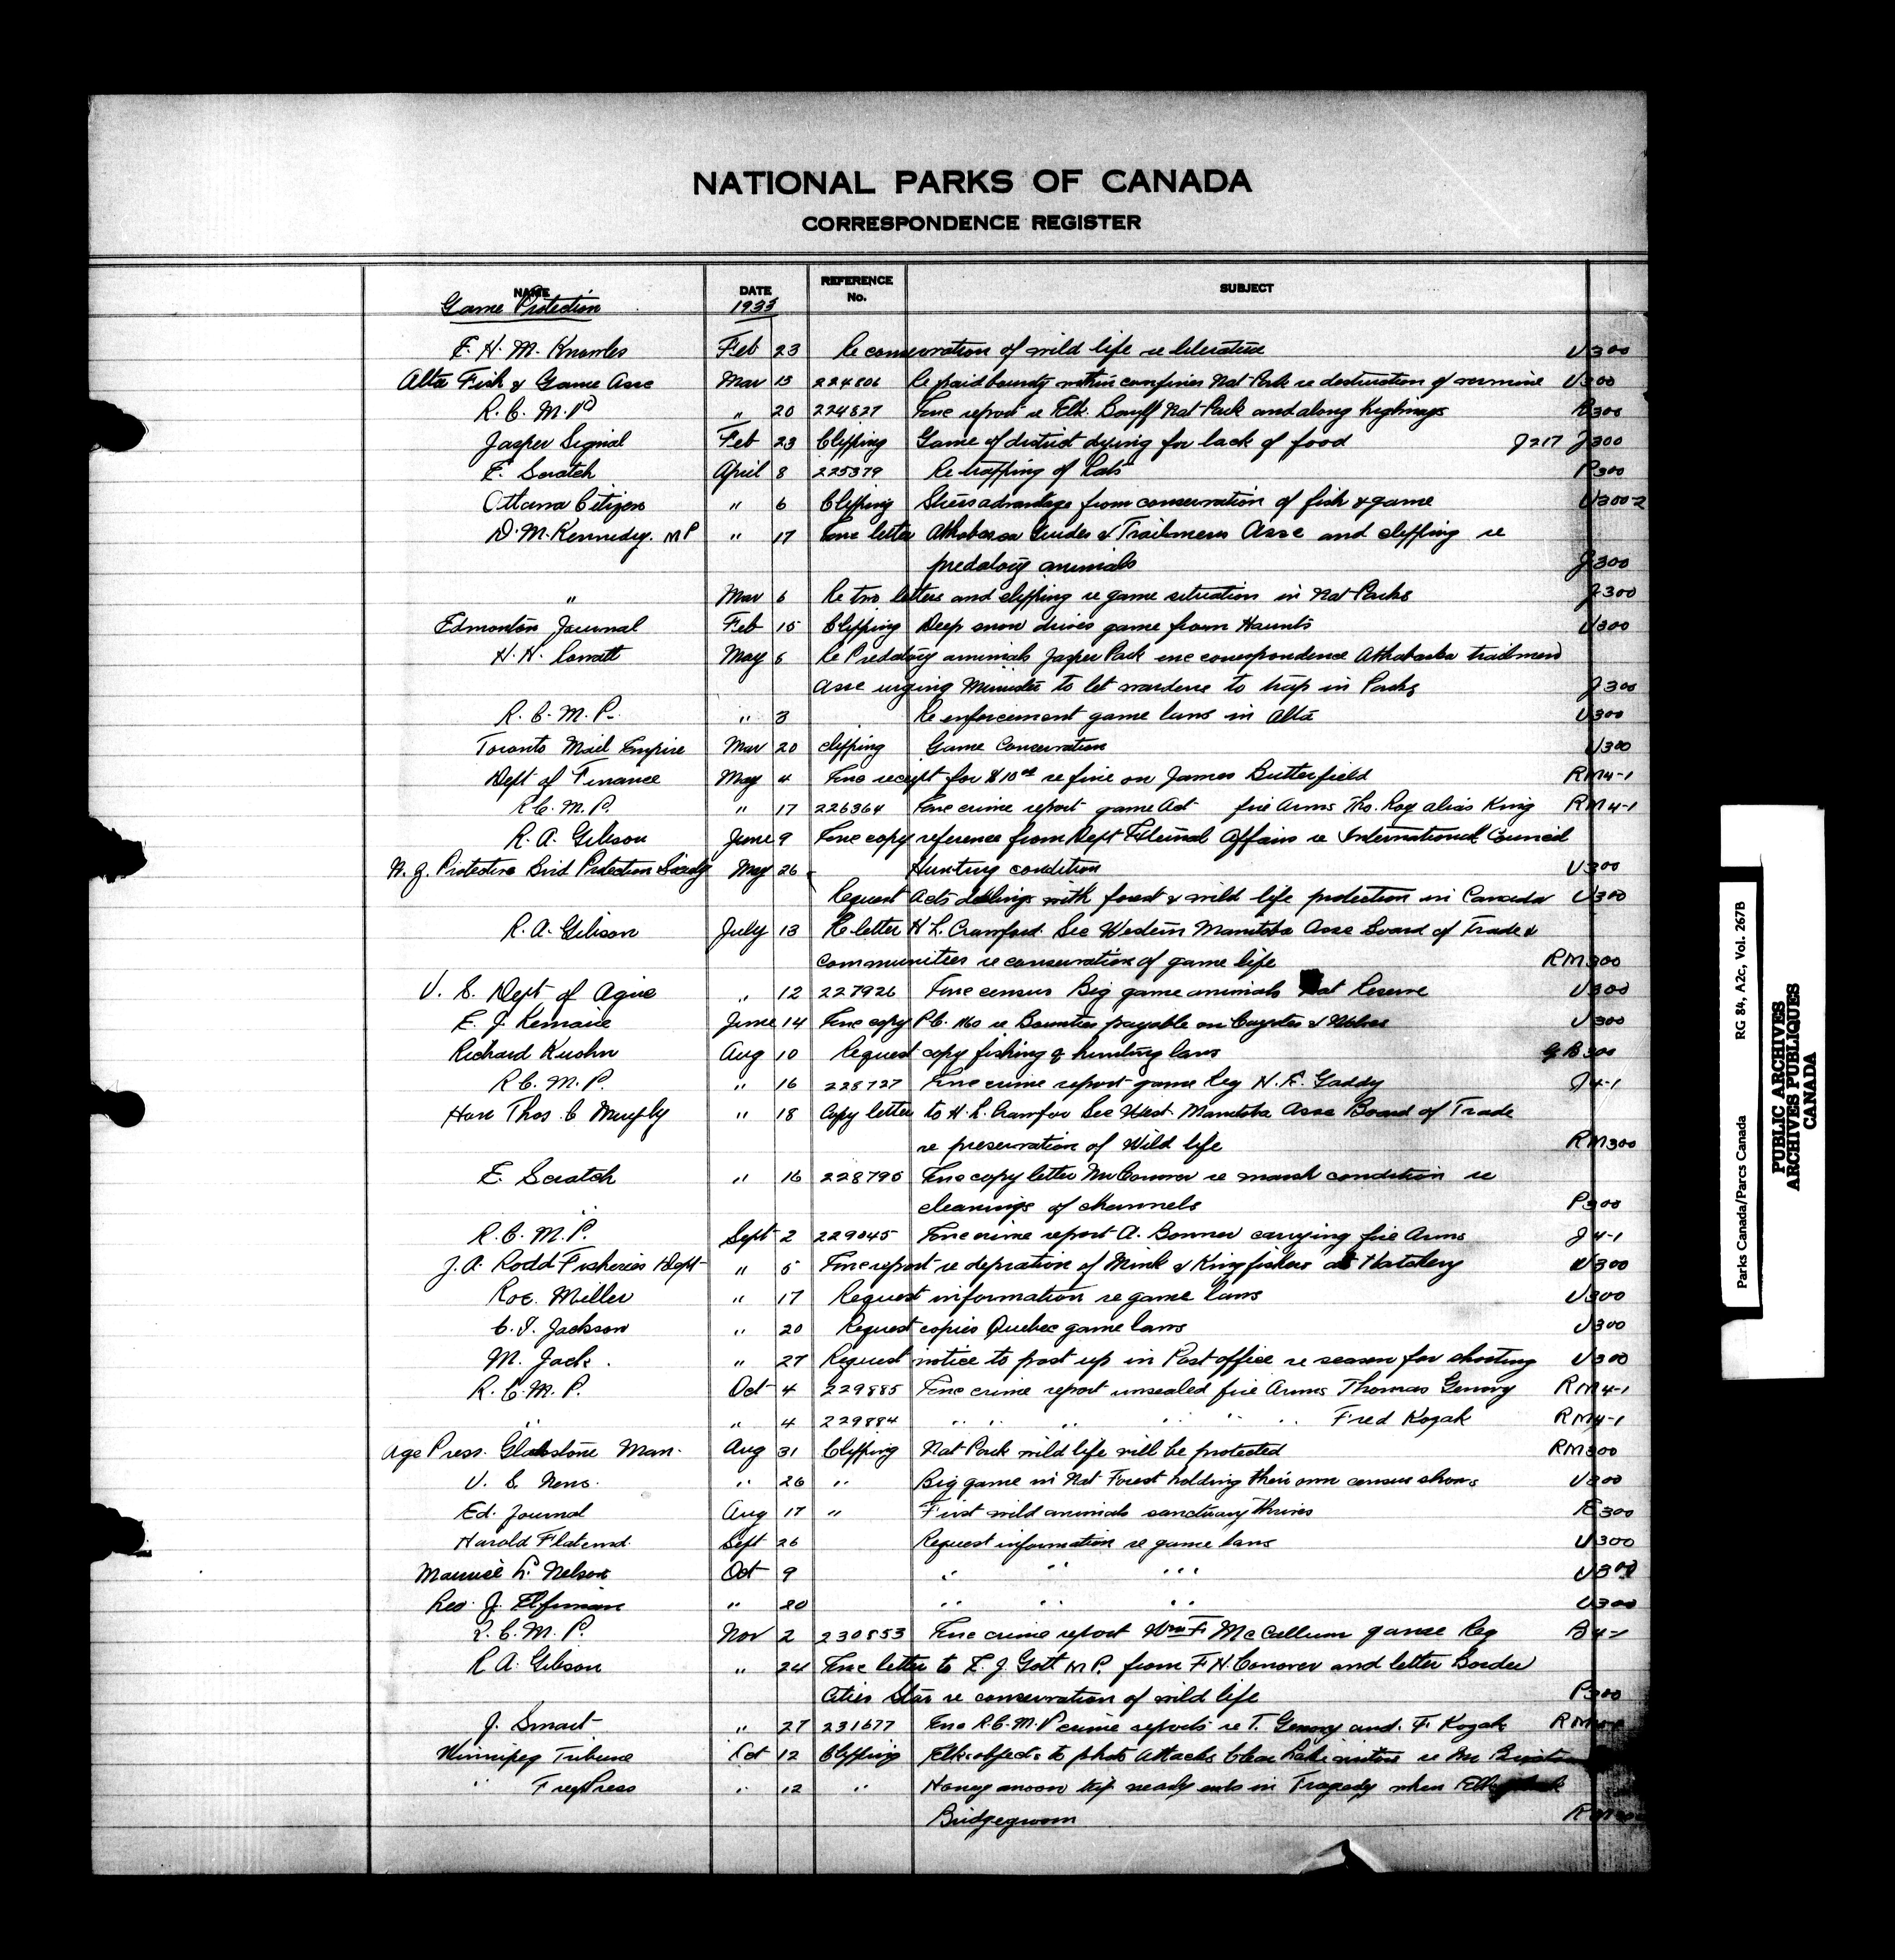 NATIONAL PARKS OF CANADA
CORRESPONDENCE REGISTER
NAME DATE REFERENCE No. SUBJECT
Game Protection 1933
E. H. M. Knowles Feb 23 Re conservation of wild life re literature U300
Alta Fish & Game Assc Mar 13 224806 Re paid bounty within confines Nat Park re destruction of vermine U300
R. C. M. P. " 20 224827 Enc report re Elk. Banff Nat Park and along highways B300
Jasper Signal Feb 23 Clipping Game of district dying for lack of food J217 J300
E. Scratch April 8 225379 Re trapping of Rats P300
Ottawa Citizen " 6 Clipping Stress advantage from conservation of fish & game U300-2
D. M. Kennedy. MP " 17 Enc letter Athabasca Guides & Trailmens Assc and clipping re
predatory animals J300
" Mar 6 Re two letters and clipping re game situation in Nat Parks J300
Edmonton Journal Feb 15 Clipping Deep snow drives game from Haunts U300
H. H. May 5 Re Predatory animals Jasper Park enc correspondence Athabaska trailmens
Assc urging Minister to let wardens to trap in Parks J300
R. C. M. P. " 3 Re enforcement game laws in Alta U300
Toronto Mail Empire Mar 20 clipping Game Conservation U300
Dept of Finance May 4 Enc receipt for $10.00 re fine on James Butterfield RM4-1
R.C. M. P. " 17 226364 Enc crime report game Act fire Arms Tho. Roy alias King RM4-1
R. A. Gibson June 9 Enc copy reference from Dept External Affairs re International Council
Hunting condition U300
N. J. Protective Bird Protection Society May 26
Request Acts dealings with forest & wild life protection in Canada U300
R. A. Gibson July 13 Re letter H L. Crawford Sec Western Manitoba Assc Board of Trade &
communities re conservation of game life RM300
U. S. Dept of Agric " 12 227926 Enc census Big game animals Nat Reserve U300
E. J. Lemaire June 14 Enc copy P.C. 1160 re Bounties payable on Coyotes & Wolves U300
Richard Kuohn Aug 10 Request copy fishing & hunting laws GB300
R C. M. P. " 16 228727 Enc crime report game Reg H. F. Gaddy J4-1
Hon Thos. G Murphy " 18 Copy letter to H. L. Crawfor Sec West. Manitoba Assc Board of Trade
re preservation of Wild life RM300
E. Scratch " 16 228790 Enc copy letter Mr Conover re marsh condition re
cleanings of channels P300
R. C. M. P. Sept 2 229045 Enc crime report A. Bonner carrying fire Arms J4-1
J. A. Rodd Fisheries Dept " 5 Enc report re depration of Mink & Kingfishers at Hatchery U300
Roe. Miller " 17 Request information re game laws U300
C. I. Jackson " 20 Request copies Quebec game laws U300
M. Jack. " 27 Request notice to post up in Post office re season for shooting U300
R. C. M. P. Oct 4 229885 Enc crime report unsealed fire Arms Thomas Genovy RM4-1
" " 4 229884 " " " " " " Fred Kozak RM4-1
Age Press. Gladstone Man. Aug 31 Clipping Nat Park wild life will be protected RM300
U. S. News. " 26 " Big game in Nat Forest holding their own census shows U300
Ed. Journal Aug 17 " First wild animals sanctuary thrives E300
Harold Sept 26 Request information re game laws U300
Maurice L. Nelson Oct 9 " " " U300
Rev. J. " 20 " " " U300
R. C. M. P. Nov 2 230853 Enc crime report Wm F. McCallum game Reg B4-1
R A. Gibson " 24 Enc letter to E. J. Gott MP. from F H. Conover and letter Border
Cities Star re conservation of wild life P300
J. Smart " 27 231677 Enc R.C.M.P crime reports re T. Genovy and F. Kozak RM4-1
Winnipeg Tribune Oct 12 Clipping Elk objects to photo attacks Clear Lake re Mr
" Free Press " 12 " Honeymoon trip nearly ends in Tragedy when Elk
Bridgegroom
Parks Canada/Parcs Canada RG 84, A2c, Vol. 267B
PUBLIC ARCHIVES
ARCHIVES PUBLIQUES
CANADA